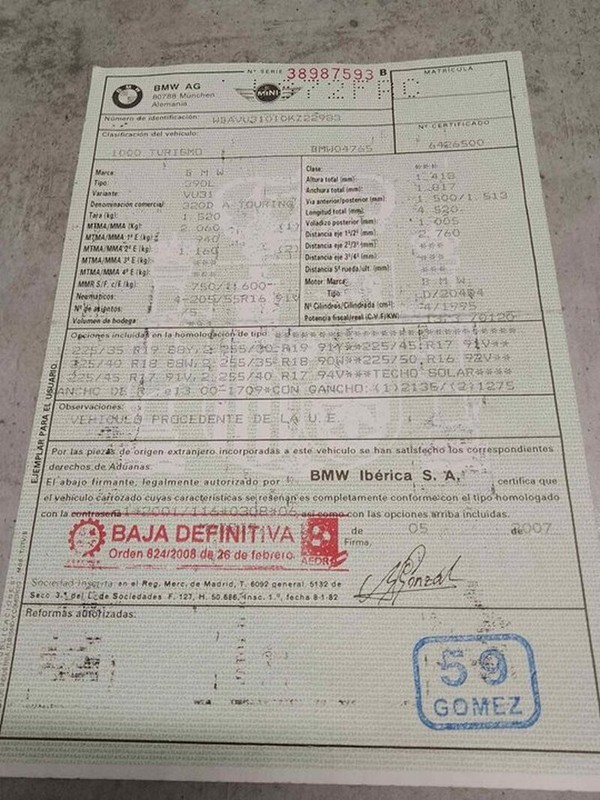 Nº SERIE 38987593 B
MATRÍCULA
BMW AG
80788 München
Alemania
MINI
Número de identificación:
Nº CERTIFICADO
Clasificación del vehículo:
1000 TURISMO BMW04765 6426500
Marca: B M W
Tipo: 390L
Variante: VU31
Denominación comercial: 320D A TOURING
Tara (kg): 1.520
MTMA/MMA (kg): 2.060 (1)
MTMA/MMA 1º E (kg): 940
MTMA/MMA 2º E (kg): 1.160 (2)
MTMA/MMA 3º E (kg): ***
MTMA/MMA 4º E (kg): ***
MMR S/F. c/F. (kg): 750/1.600-
Neumáticos: 4-205/55R16 91V
Nº de asientos: /5
Volumen de bodega: ***
Clase: ***
Altura total (mm): 1.418
Anchura total (mm): 1.817
Vía anterior/posterior (mm): 1.500/1.513
Longitud total (mm): 4.520
Voladizo posterior (mm): 1.005
Distancia eje 1º/2º (mm): 2.760
Distancia eje 2º/3º (mm): ***
Distancia eje 3º/4º (mm): ***
Distancia 5ª rueda/últ. (mm): ***
Motor Marca: B M W
Tipo: D/204D4
Nº Cilindros/Cilindrada (cm³): 4/1995
Potencia fiscal/real (C.V.F/KW): /0120
Opciones incluidas en la homologación de tipo:
225/35 R19 88Y,2 255/30 R19 91Y**225/45 R17 91V**
225/40 R18 88W,2 255/35 R18 90W**225/50 R16 92V**
225/45 R17 91V,2 255/40 R17 94V***TECHO SOLAR***
e13 00-1709*CON GANCHO:(1)2135/(2)1275
Observaciones:
VEHICULO PROCEDENTE DE LA U.E.
EJEMPLAR PARA EL USUARIO
Por las piezas de origen extranjero incorporadas a este vehículo se han satisfecho los correspondientes
derechos de Aduanas:
El abajo firmante, legalmente autorizado por BMW Ibérica S. A, certifica que
el vehículo carrozado cuyas características se reseñan es completamente conforme con el tipo homologado
con la contraseña *2001/116*0308*06 así como con las opciones arriba incluidas.
BAJA DEFINITIVA
Orden 624/2008 de 26 de febrero
AEDRA
de 05 de 2007
Firma,
Sociedad Inscrita en el Reg. Merc. de Madrid, T. 6092 general, 5132 de
Secc. 3.ª del L. de Sociedades F. 127, H. 50.686, Insc. 1.ª, fecha 8-1-82
Reformas autorizadas:
59
GOMEZ